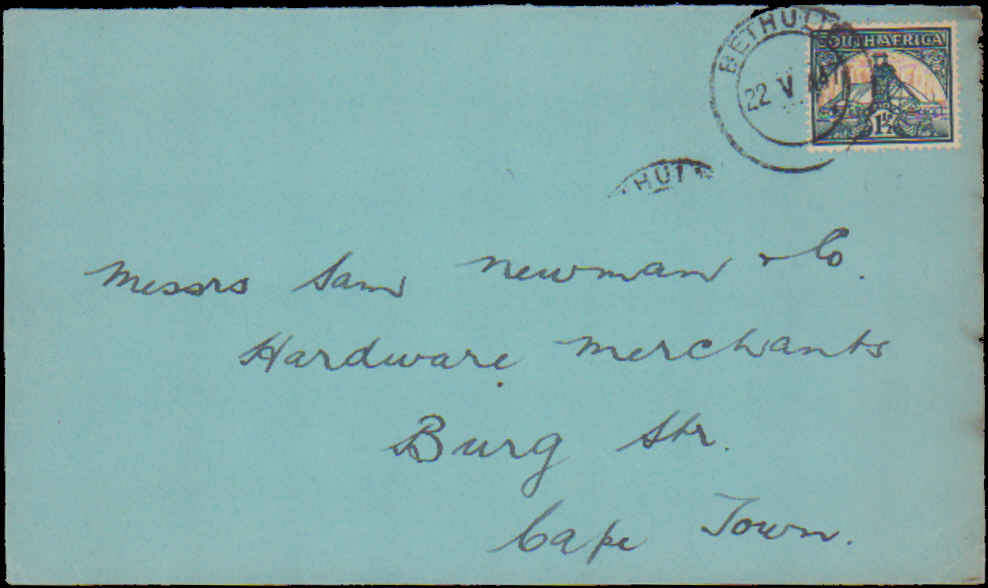 BETHULIE
SOUTH AFRICA
22 V
1½
THULI
Messrs Sam Newman & Co.
Hardware Merchants
Burg Str.
Cape Town.